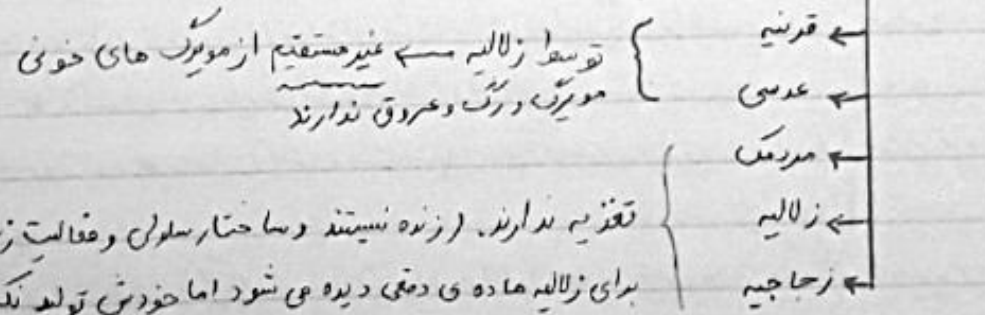 ← قرنیه
← عدسی
توسط زلالیه ← غیرمستقیم از مویرگ های خونی
مویرگ و رگ و عروق ندارند
← مردمک
← زلالیه
← زجاجیه
تغذیه ندارند. (زنده نیستند و ساختار سلولی و فعالیت
برای زلالیه ماده ی دفعی دیده می شود اما خودش تولید